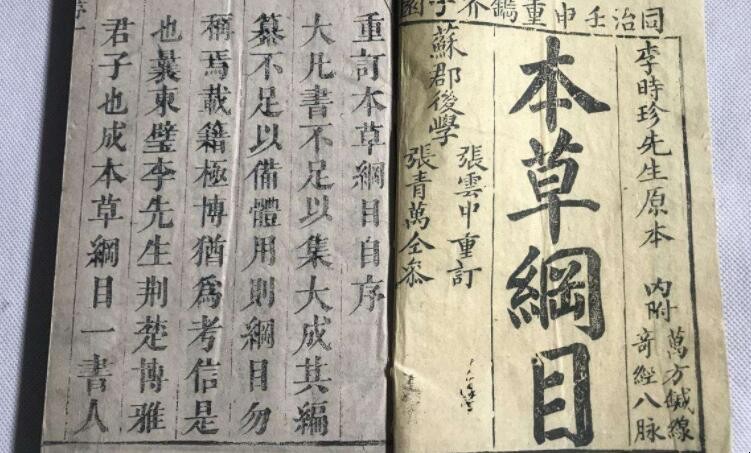 同治壬申重鐫芥子
李時珍先生原本
內附
萬方鍼線
奇經八脉
本草綱目
蘇郡後學
張雲中重訂
張青萬仝叅
重訂本草綱目自序
大凡書不足以集大成其編
纂不足以備體用則綱目勿
稱焉載籍極博猶爲考信是
也曩東璧李先生荆楚博雅
君子也成本草綱目一書人